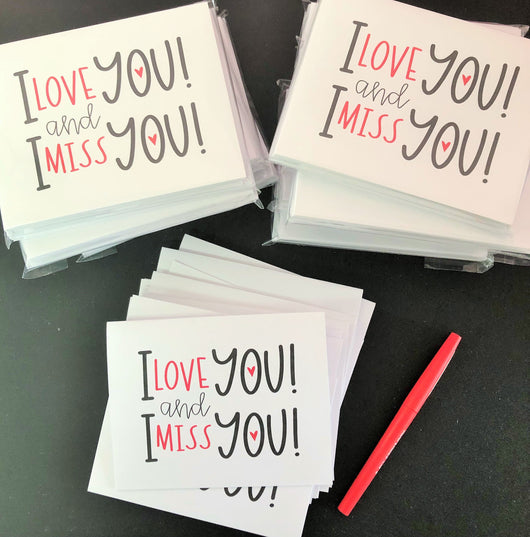 I LOVE YOU!
and
I MISS YOU!
I LOVE YOU!
and
I MISS YOU!
I LOVE YOU!
and
I MISS YOU!
YOU!